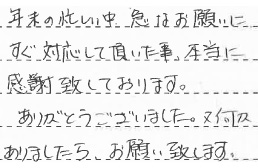 年末の忙しい中 急なお願いに
すぐ対応して頂いた事、本当に
感謝致しております。
ありがとうございました。又何か
ありましたら、お願い致します。